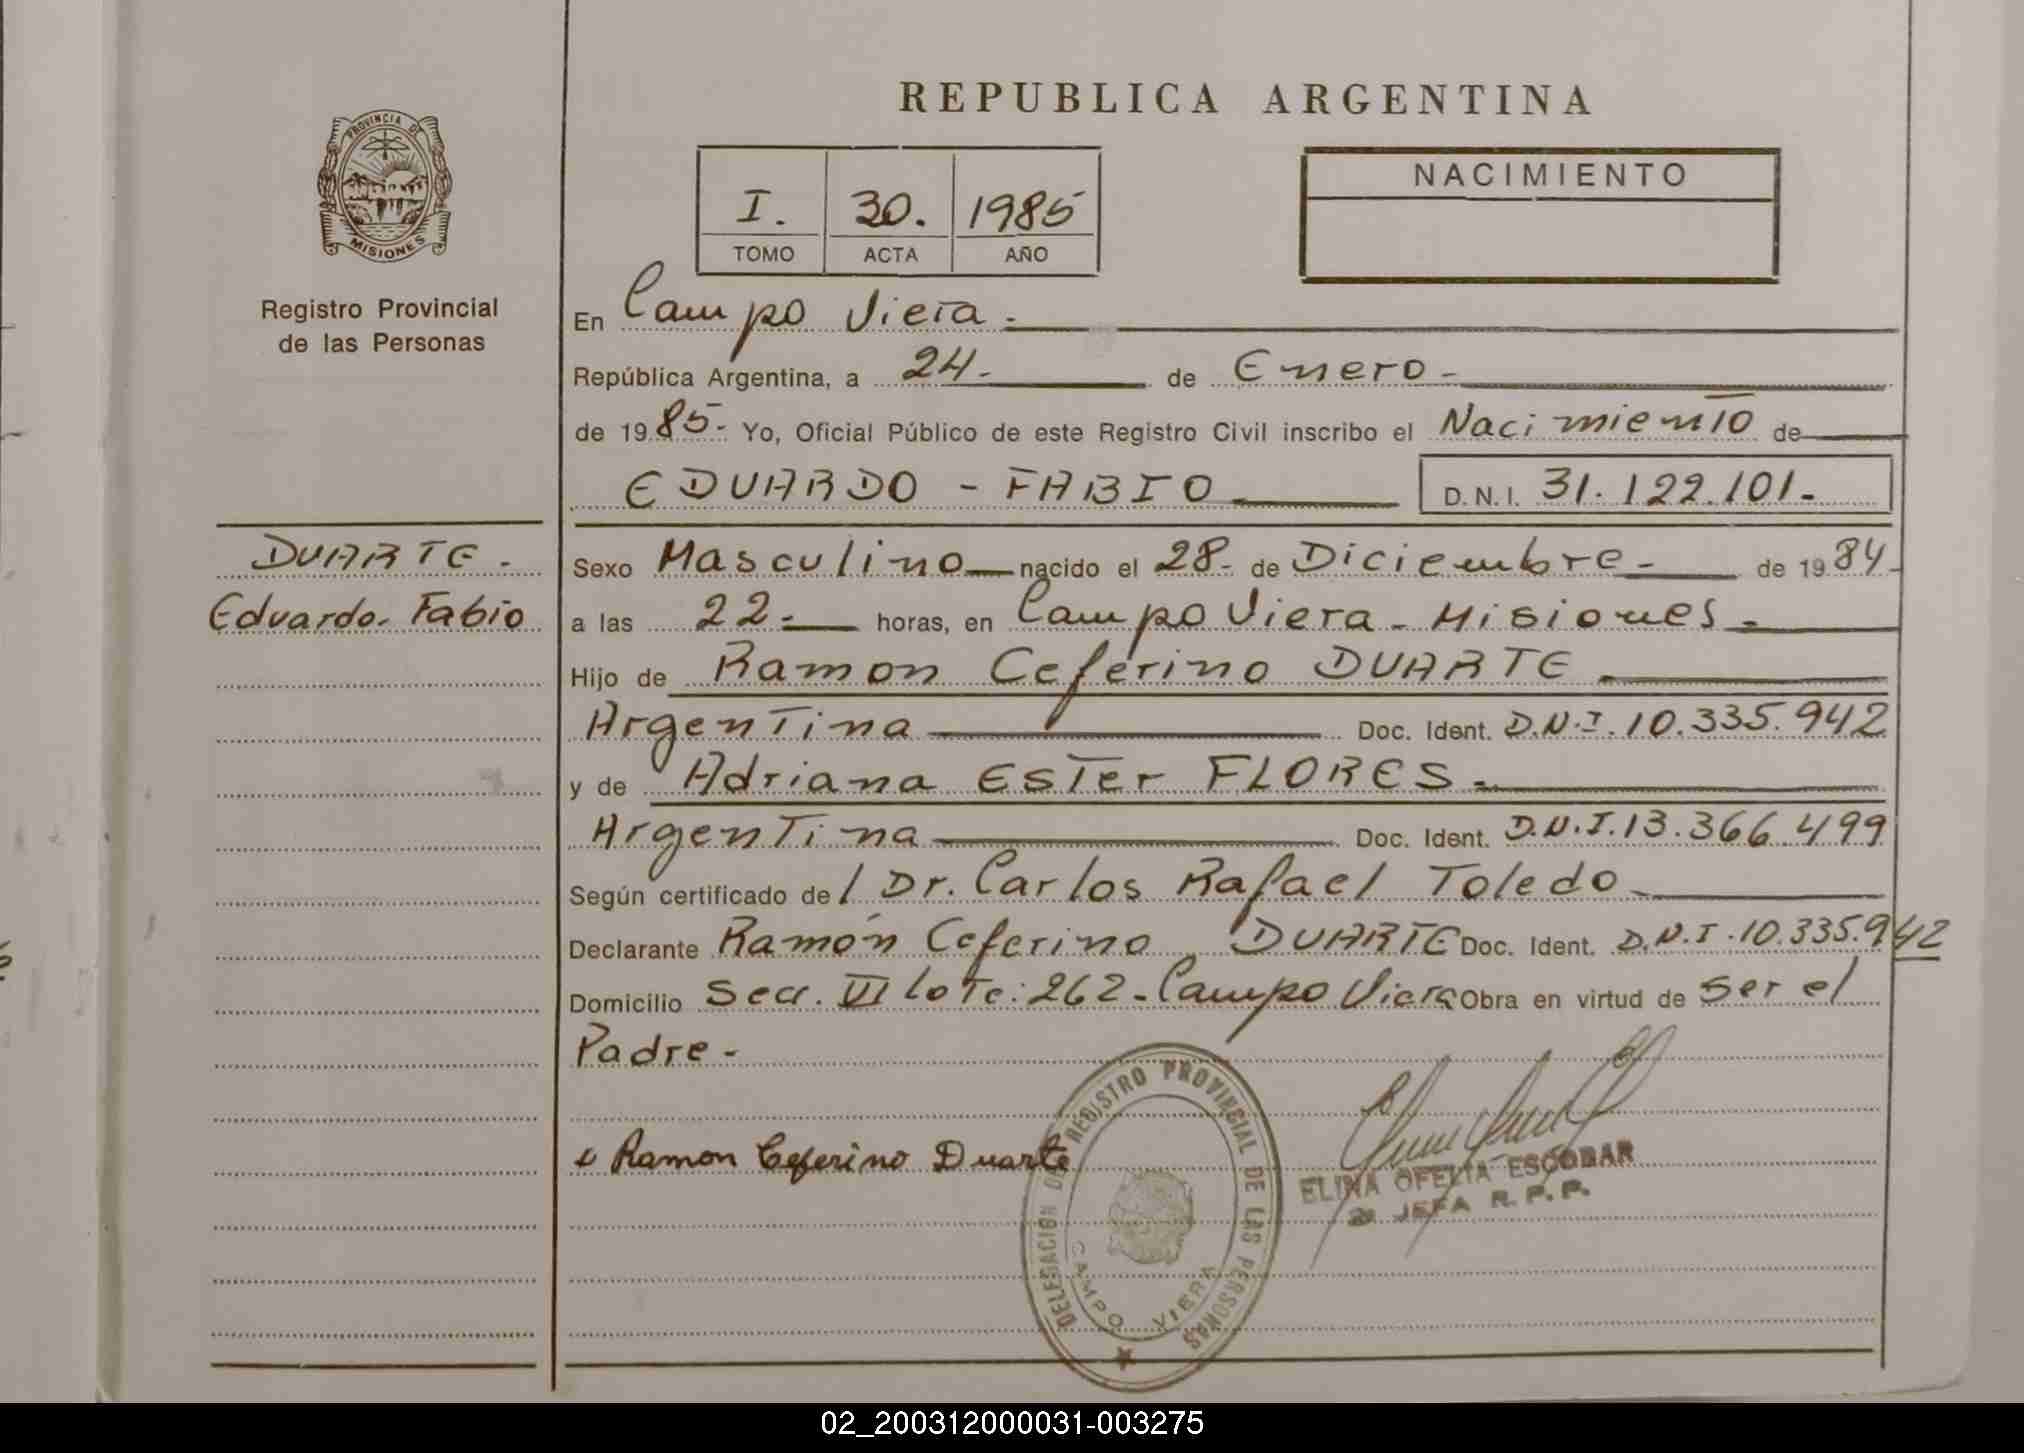 REPUBLICA ARGENTINA
PROVINCIA DE
MISIONES
Registro Provincial
de las Personas
I. 30. 1985
TOMO ACTA AÑO
NACIMIENTO
En Campo Viera.
República Argentina, a 24- de Enero-
de 1985- Yo, Oficial Público de este Registro Civil inscribo el Nacimiento de
EDUARDO - FABIO D.N.I. 31.122.101-
DUARTE.
Eduardo- Fabio
Sexo Masculino nacido el 28- de Diciembre- de 1984-
a las 22- horas, en Campo Viera - Misiones-
Hijo de Ramon Ceferino DUARTE.
Argentina Doc. Ident. D.N.I. 10.335.942
y de Adriana Ester FLORES-
Argentina Doc. Ident. D.N.I. 13.366.499
Según certificado de / Dr. Carlos Rafael Toledo-
Declarante Ramón Ceferino DUARTE Doc. Ident. D.N.I. 10.335.942
Domicilio Secc. VI Lote: 262- Campo Viera Obra en virtud de ser el
Padre-
Ramon Ceferino Duarte
DELEGACION DEL REGISTRO PROVINCIAL DE LAS PERSONAS
CAMPO VIERA
ELINA OFELIA ESCOBAR
JEFA R. P. P.
02_200312000031-003275